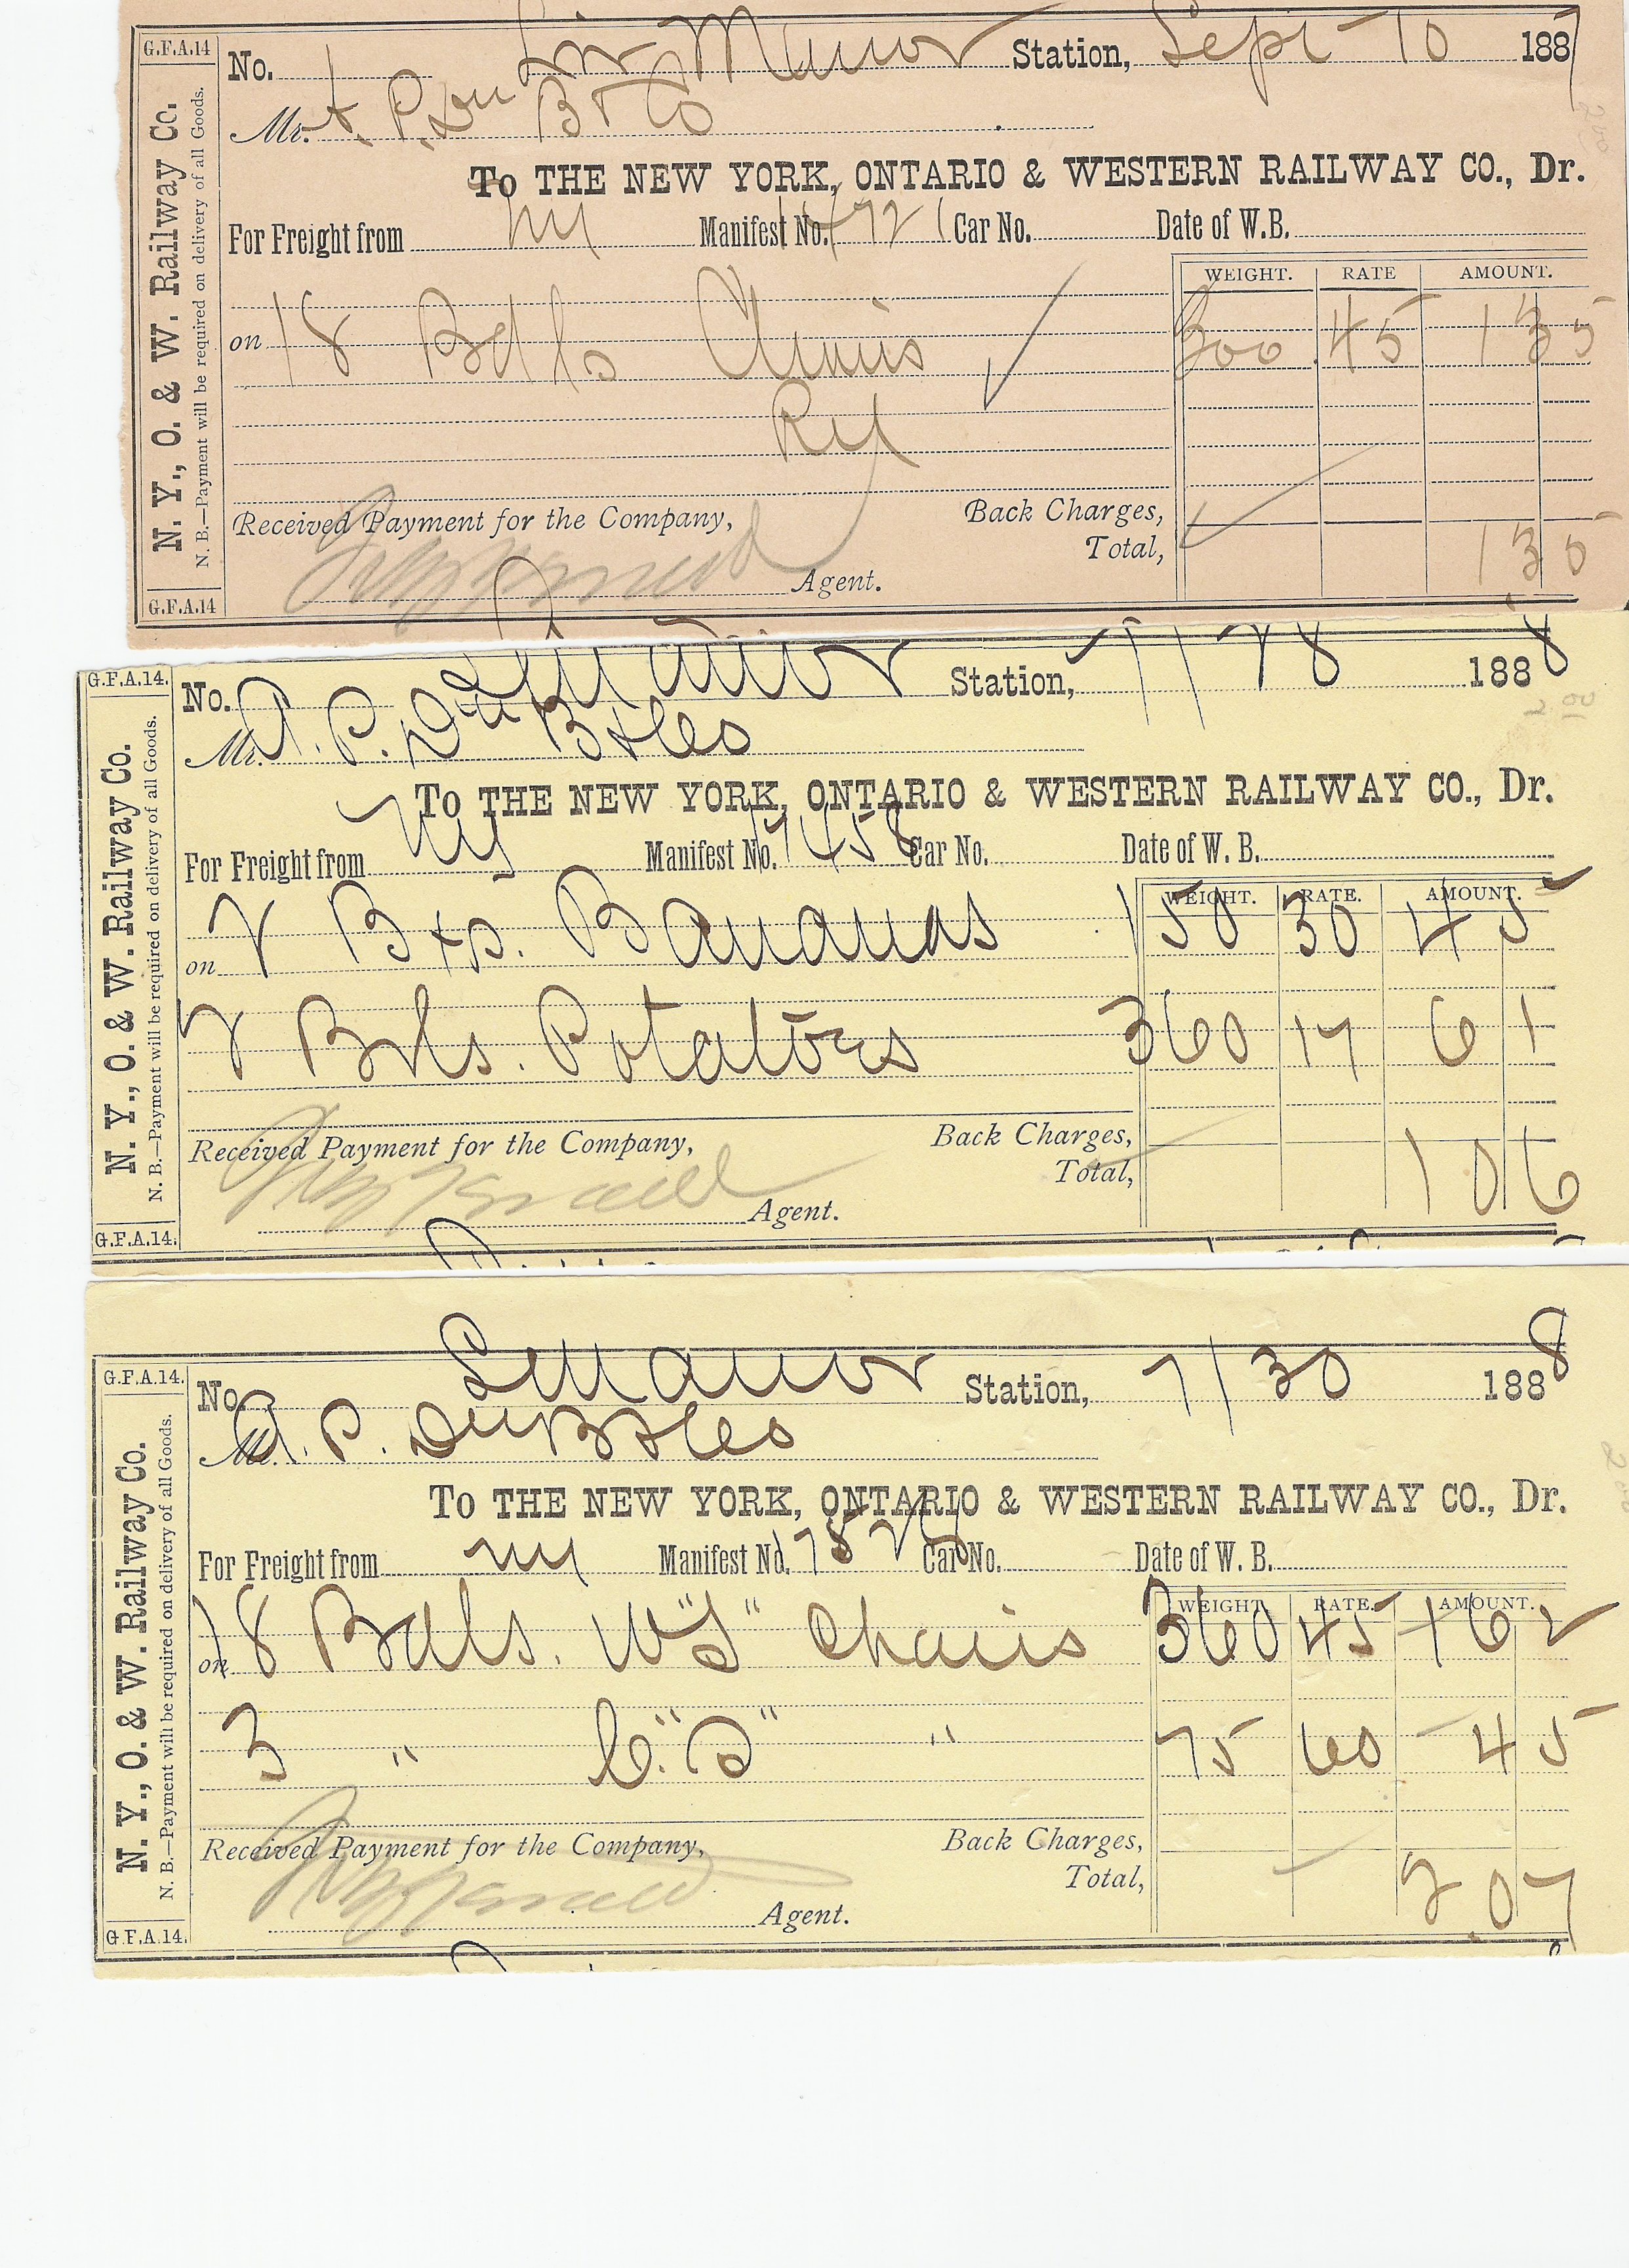 G.F.A.14
N. Y., O. & W. Railway Co.
N. B.—Payment will be required on delivery of all Goods.
G.F.A.14
No. Liv Manor Station, Sept 10 1887
Mr. A. P. Du Bois
To THE NEW YORK, ONTARIO & WESTERN RAILWAY CO., Dr.
For Freight from NY Manifest No. Car No. Date of W.B.
WEIGHT. RATE AMOUNT.
on 18 Bdls Chairs 300 45 135
Received Payment for the Company, Back Charges,
Total, 135
Agent.
G.F.A.14.
N. Y., O. & W. Railway Co.
N. B.—Payment will be required on delivery of all Goods.
G.F.A.14.
No. L Manor Station, 7/28 1888
Mr. A. P. Du Bois
To THE NEW YORK, ONTARIO & WESTERN RAILWAY CO., Dr.
For Freight from NY Manifest No. 17458 Car No. Date of W. B.
WEIGHT. RATE. AMOUNT.
on 2 Bxs. Bananas 150 30 45
2 Brls. Potatoes 360 17 61
Received Payment for the Company, Back Charges,
Total, 106
Agent.
G.F.A.14.
N. Y., O. & W. Railway Co.
N. B.—Payment will be required on delivery of all Goods.
G.F.A.14.
No. L Manor Station, 7/30 1888
Mr. A. P. DuBois
To THE NEW YORK, ONTARIO & WESTERN RAILWAY CO., Dr.
For Freight from NY Manifest No. Car No. Date of W. B.
WEIGHT. RATE. AMOUNT.
on 18 Bdls. W"S" Chairs 360 45 162
3 " C."S" " 75 60 45
Received Payment for the Company, Back Charges,
Total, 2.07
Agent.